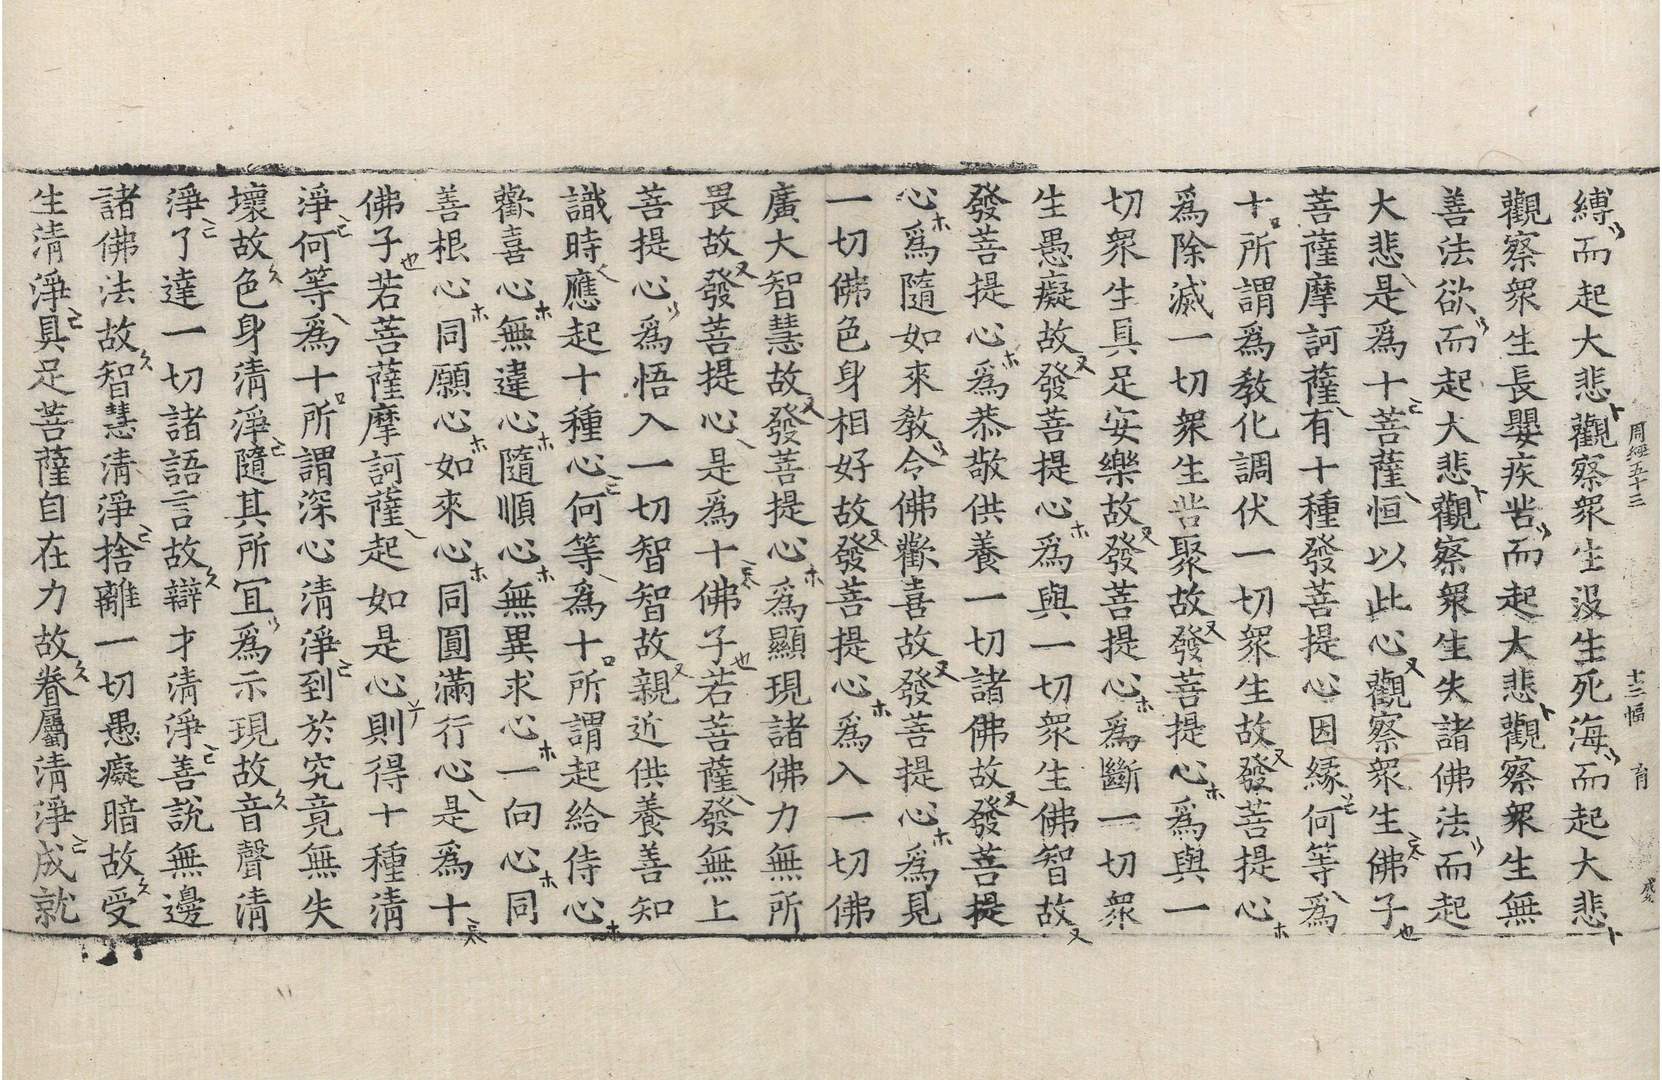 周經五十三　十二幅　育
縛而起大悲觀察衆生没生死海而起大悲
觀察衆生長嬰疾苦而起大悲觀察衆生無
善法欲而起大悲觀察衆生失諸佛法而起
大悲是爲十菩薩恒以此心觀察衆生佛子
菩薩摩訶薩有十種發菩提心因緣何等爲
十所謂爲敎化調伏一切衆生故發菩提心
爲除滅一切衆生苦聚故發菩提心爲與一
切衆生具足安樂故發菩提心爲斷一切衆
生愚癡故發菩提心爲與一切衆生佛智故
發菩提心爲恭敬供養一切諸佛故發菩提
心爲隨如來敎令佛歡喜故發菩提心爲見
一切佛色身相好故發菩提心爲入一切佛
廣大智慧故發菩提心爲顯現諸佛力無所
畏故發菩提心是爲十佛子若菩薩發無上
菩提心爲悟入一切智智故親近供養善知
識時應起十種心何等爲十所謂起給侍心
歡喜心無違心隨順心無異求心一向心同
善根心同願心如來心同圓滿行心是爲十
佛子若菩薩摩訶薩起如是心則得十種清
淨何等爲十所謂深心清淨到於究竟無失
壞故色身清淨隨其所宜爲示現故音聲清
淨了達一切諸語言故辯才清淨善說無邊
諸佛法故智慧清淨捨離一切愚癡暗故受
生清淨具足菩薩自在力故眷屬清淨成就